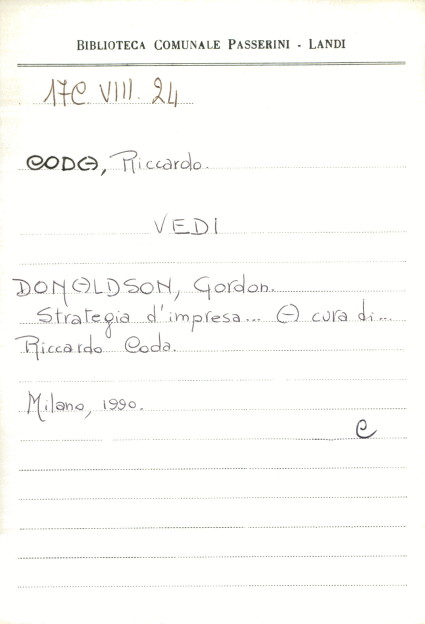 BIBLIOTECA COMUNALE PASSERINI - LANDI
17C VIII. 24
CODA, Riccardo.
VEDI
DONALDSON, Gordon.
Strategia d'impresa... A cura di...
Riccardo Coda.
Milano, 1990.
C